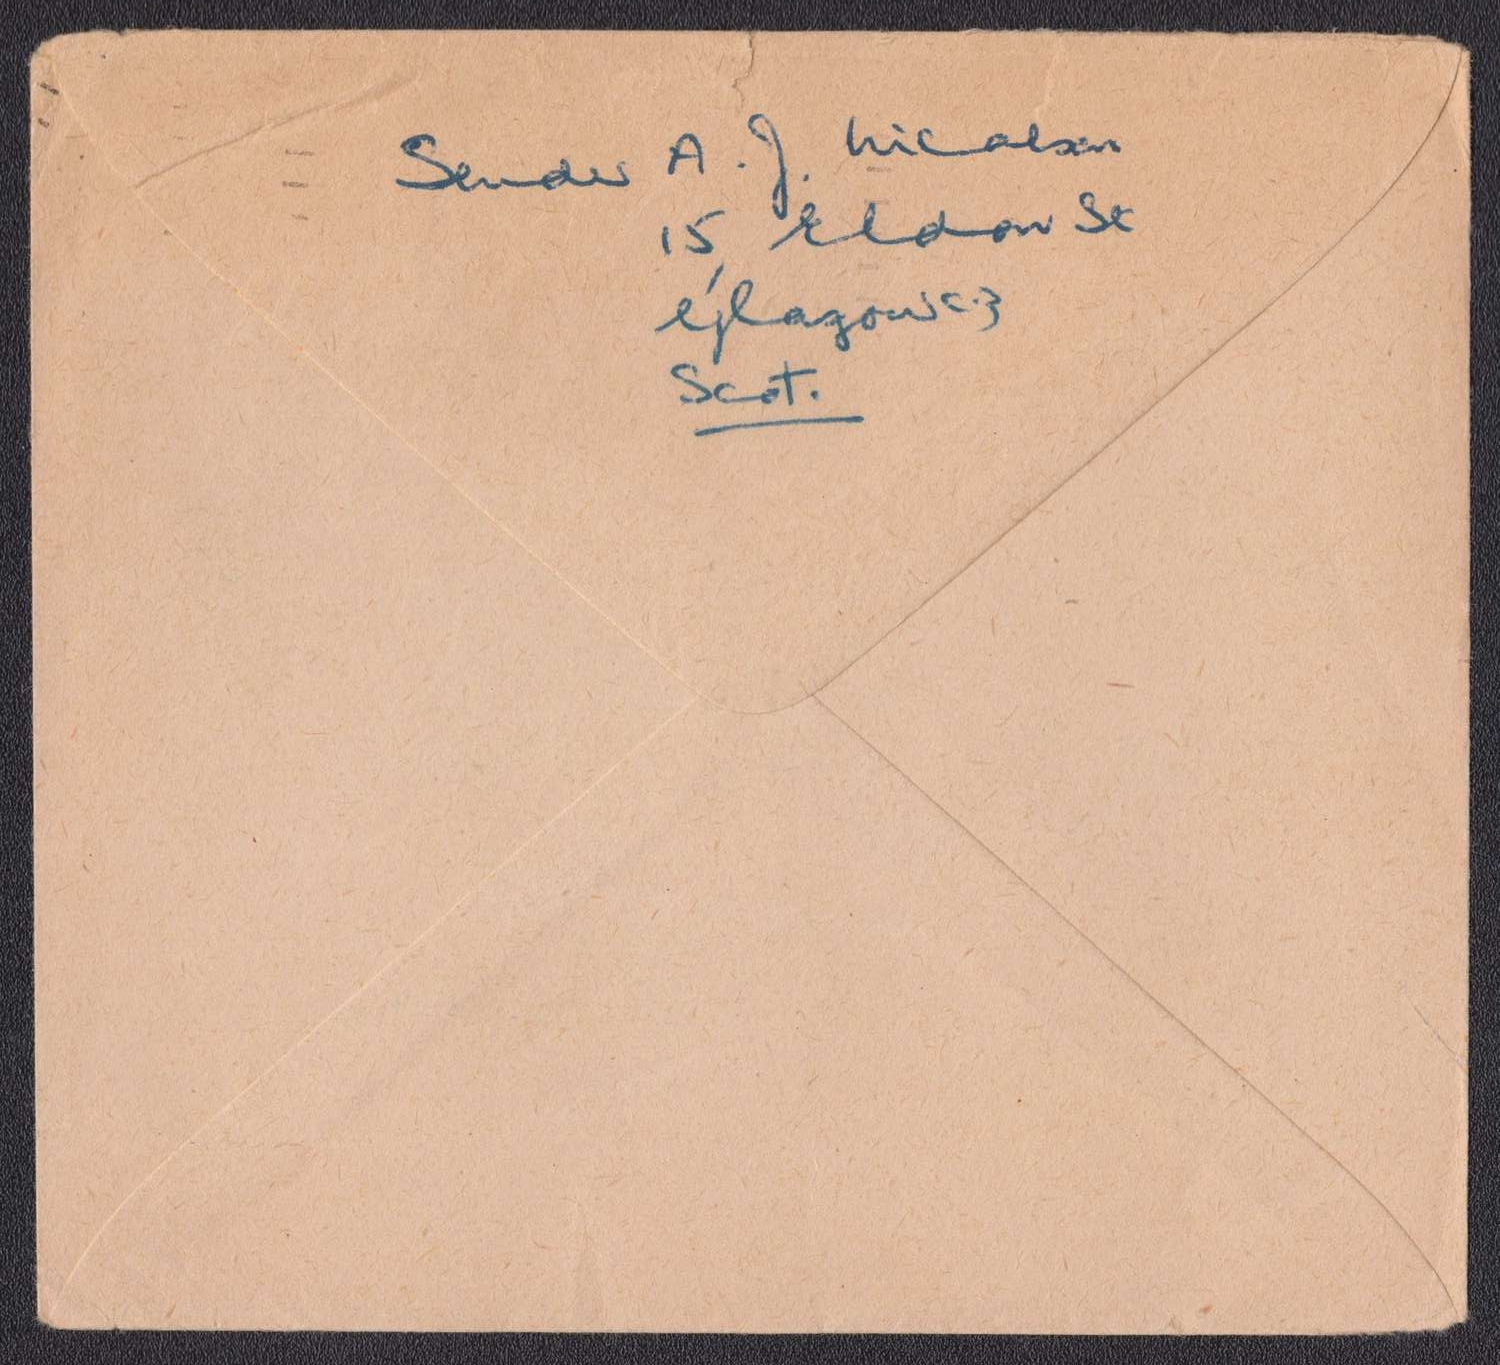 Sender A. J. Nicolson
15, Eldon St
Glasgow C.3
Scot.